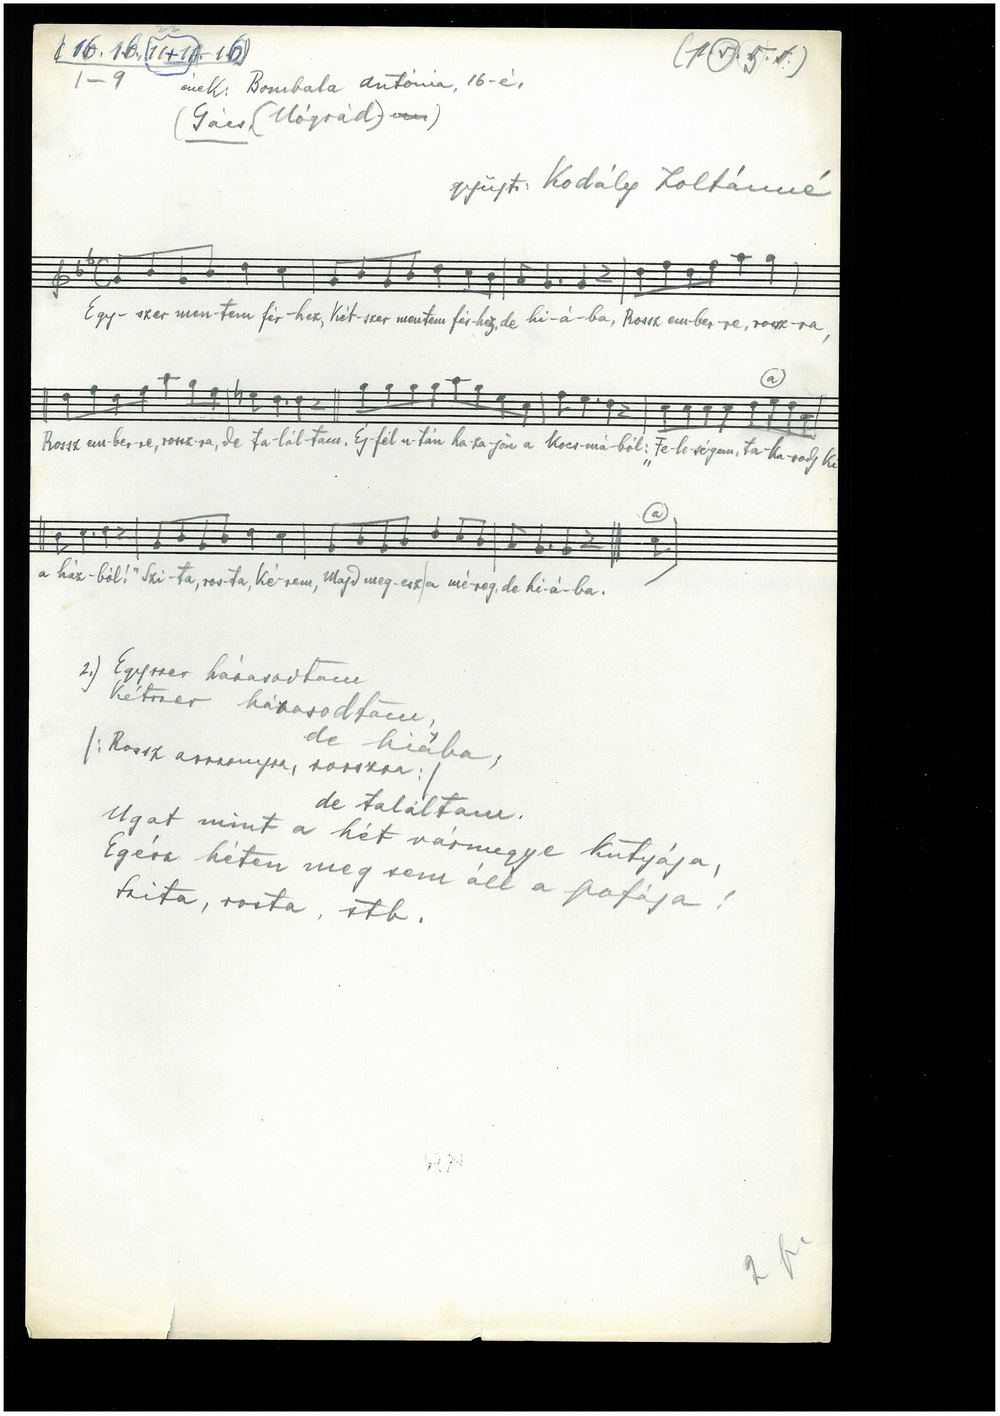 16. 16. 11+11. 16
22
1–9
ének: Bombala Antónia, 16-é.
(Gács, (Nógrád)
gyűjt: Kodály Zoltánné
Egy-szer men-tem fér-hez, Két-szer mentem fér-hez, de hi-á-ba, Rossz em-ber-re, rossz-ra,
a
Rossz em-ber-re, rossz-ra, de ta-lál-tam. Éj-fél u-tán ha-za-jön a kocs-má-ból: „Fe-le-ségem, ta-ka-rodj ki
a
a ház-ból!" Szi-ta, ros-ta, Ké-rem, Majd meg-esz a mé-reg, de hi-á-ba.
2.) Egyszer házasodtam
Kétszer házasodtam,
de hiába,
/: Rossz asszonyra, rosszra :/
de találtam.
Ugat mint a hét vármegye kutyája,
Egész héten meg sem áll a pofája!
Szita, rosta, stb.